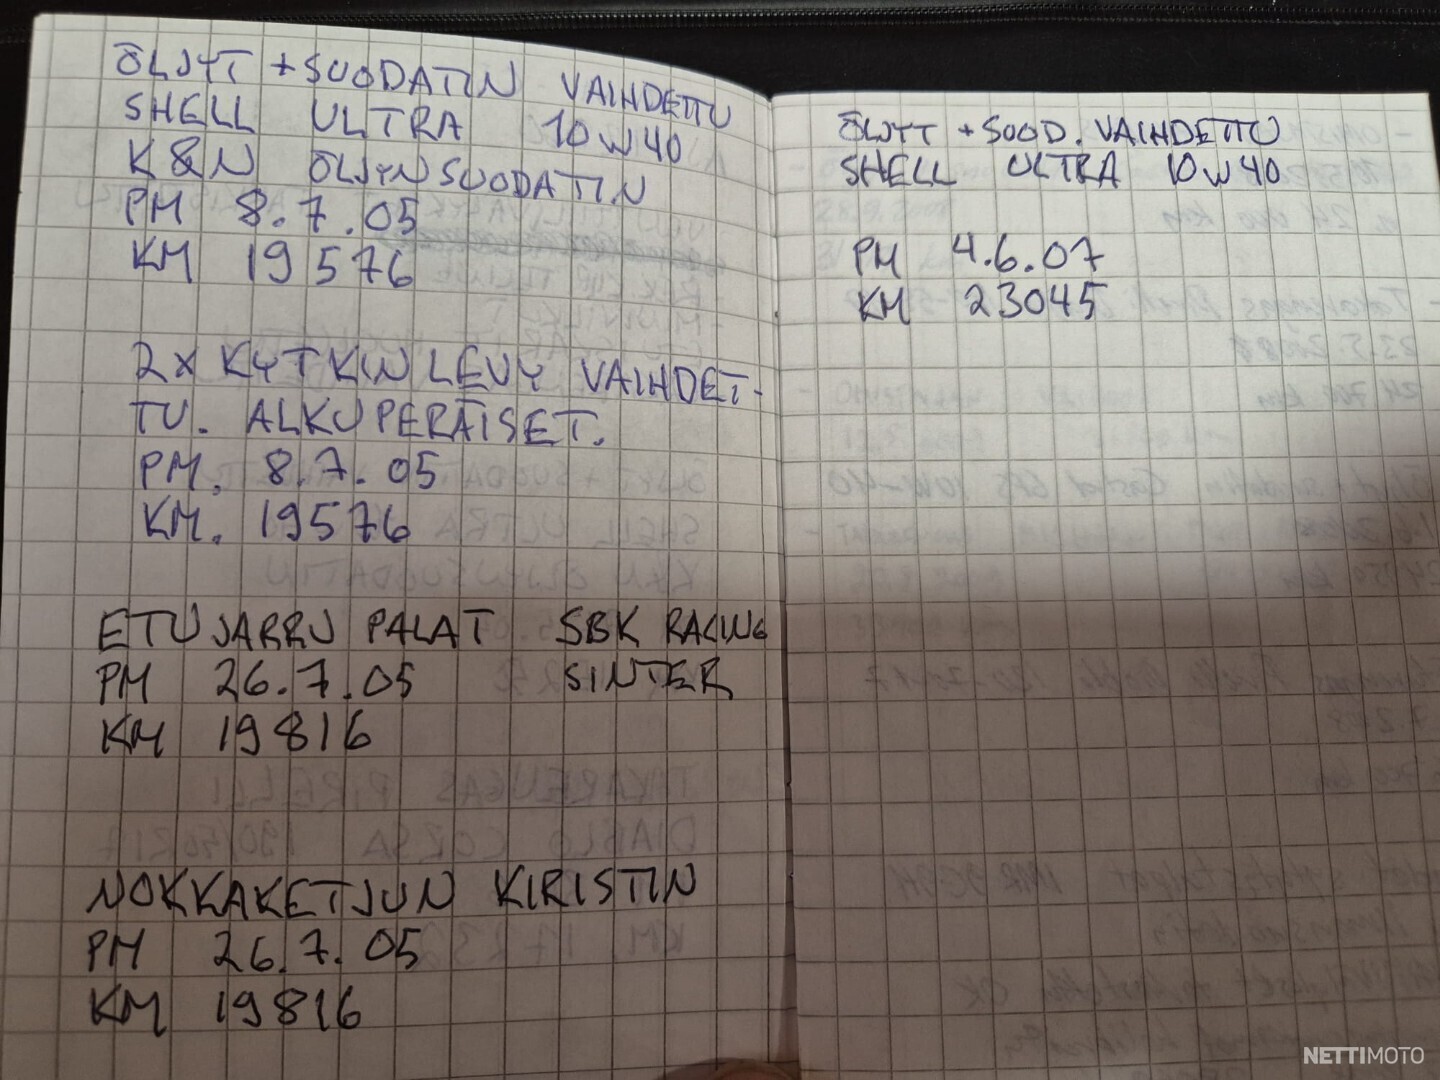 ÖLJYT + SUODATIN VAIHDETTU
SHELL ULTRA 10W40
K&N ÖLJYNSUODATIN
PM 8.7.05
KM 19576
2X KYTKINLEVY VAIHDET-
TU. ALKUPERÄISET.
PM. 8.7.05
KM. 19576
ETUJARRU PALAT SBK RACING
PM 26.7.05 SINTER
KM 19816
NOKKAKETJUN KIRISTIN
PM 26.7.05
KM 19816
ÖLJYT + SUOD. VAIHDETTU
SHELL ULTRA 10W40
PM 4.6.07
KM 23045
NETTIMOTO